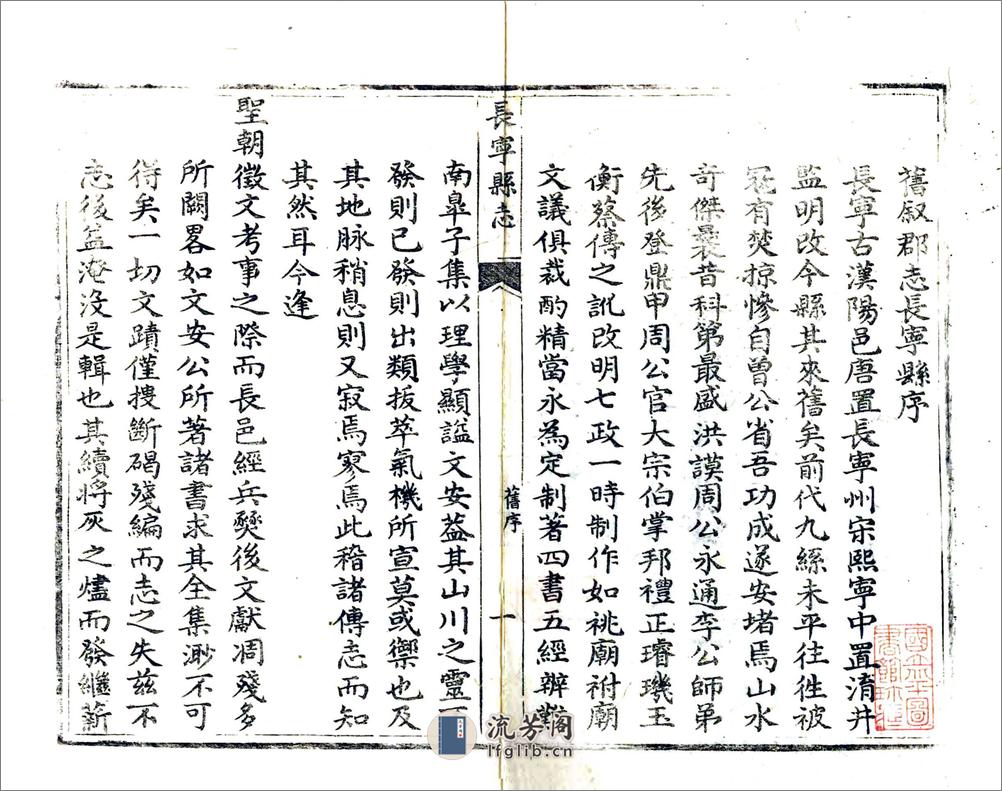 舊叙郡志長寧縣序
長寧古漢陽邑唐置長寧州宋熙寧中置淯井
監明改今縣其來舊矣前代九絲未平往徃被
冦有焚掠慘自曾公省吾功成遂安堵焉山水
奇傑曩昔科第最盛洪謨周公永通李公師弟
先後登鼎甲周公官大宗伯掌邦禮正璿璣玉
衡蔡傳之訛改明七政一時制作如祧廟祔廟
文議俱裁酌精當永為定制著四書五經辨難
長寧縣志
舊序
一
南臯子集以理學顯謚文安葢其山川之靈
發則已發則出類拔萃氣機所宣莫或禦也及
其地脉稍息則又寂焉寥焉此稽諸傳志而知
其然耳今逢
聖朝徵文考事之際而長邑經兵燹後文獻凋殘多
所闕畧如文安公所著諸書求其全集渺不可
得矣一切文蹟僅摟斷碣殘編而志之失兹不
志後益淹没是輯也其續將灰之燼而發繼薪
流芳阁
lfglib.cn